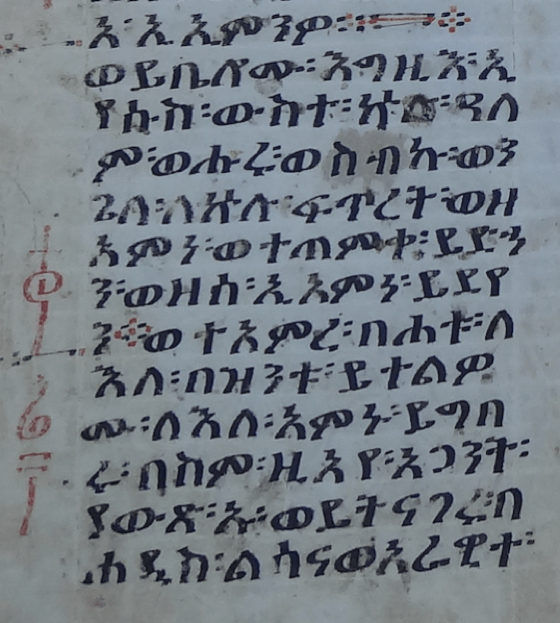 እ፡ኢ ኢምንዎ።
ወይቤሎሙ፡እግዚእ፡ኢ
የሱስ፡ውስተ፡ኵሉ፡ዓለ
ም፡ወሑሩ፡ወስብኩ፡ወን
ጌለ፡ለኵሉ፡ፍጥረት፡ወዘ
አምነ፡ወተጠምቀ፡ይድኅ
ን፡ወዘሰ፡ኢአምነ፡ይደየ
ን።ወተአምረ፡በሐቱ፡ለ
እለ፡በዝንቱ፡ይተልዎ
ሙ፡ለእለ፡አምኑ፡ይግበ
ሩ፡በስም፡ዚአየ፡አጋንት፡
ያውጽኡ፡ወይትናገሩ፡በ
ሐዲስ፡ልሳናወአራዊተ፡